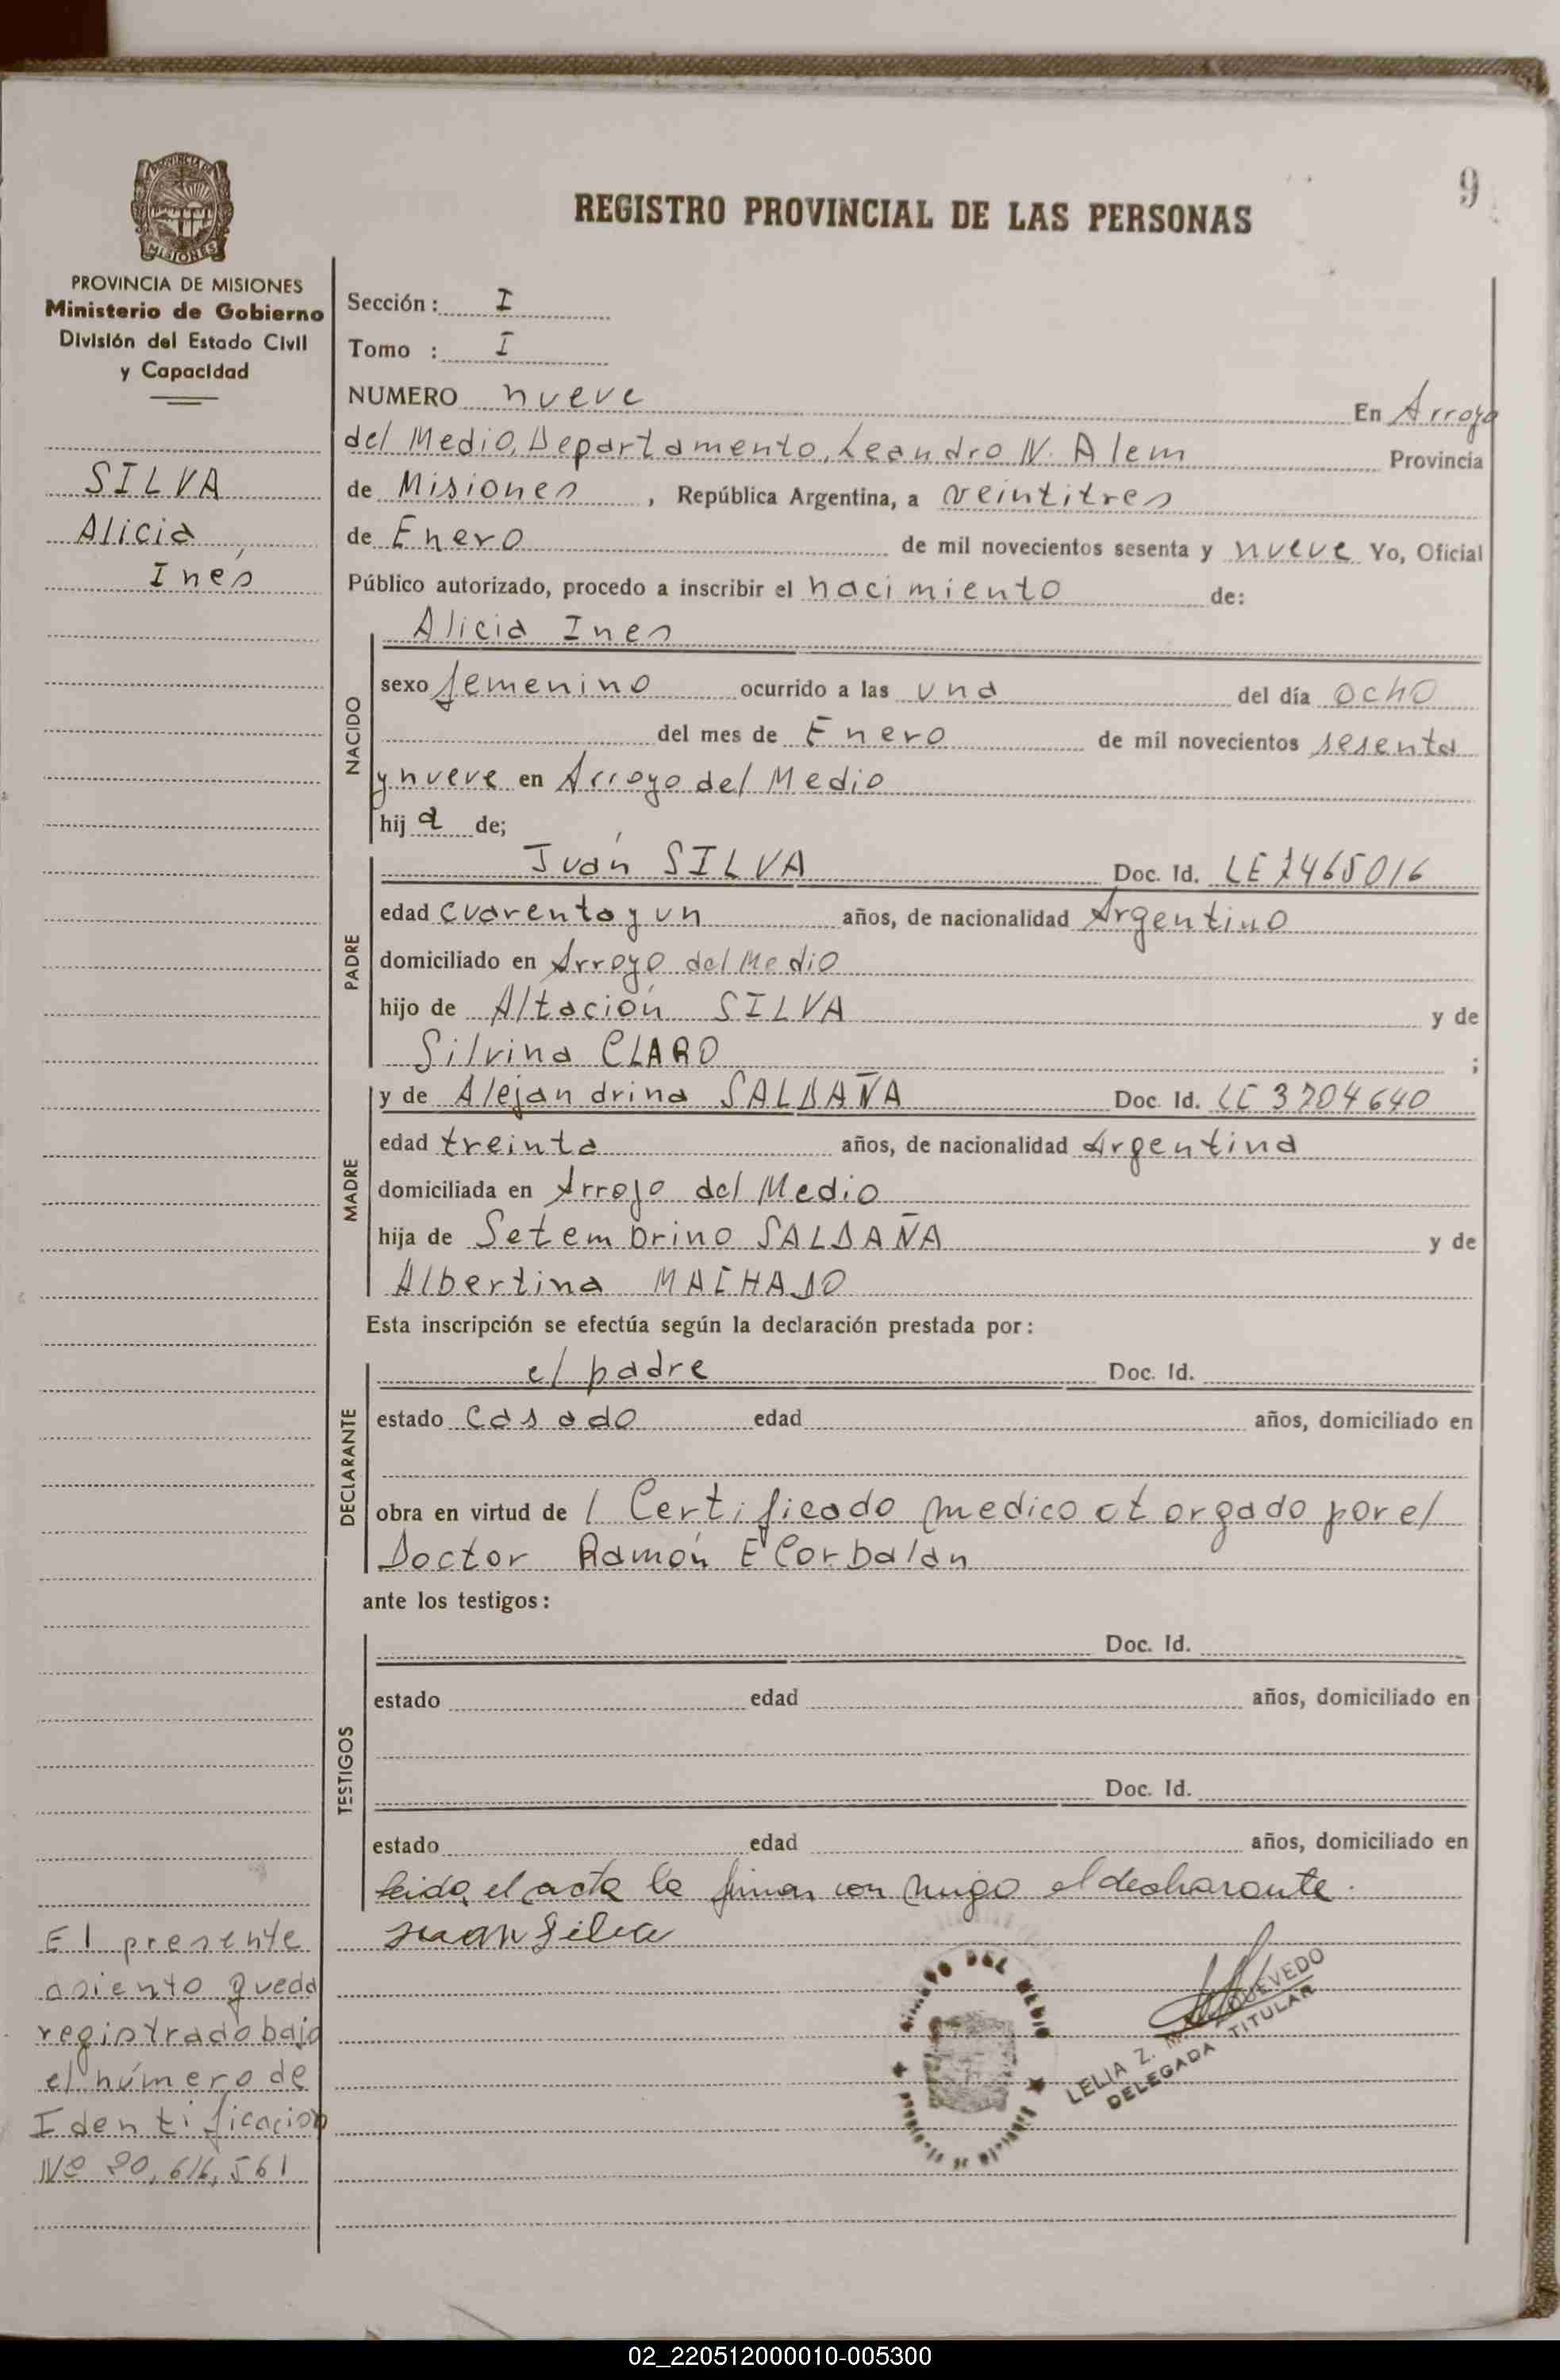 9
REGISTRO PROVINCIAL DE LAS PERSONAS
PROVINCIA DE MISIONES
Ministerio de Gobierno
División del Estado Civil
y Capacidad
SILVA
Alicia,
Inés
Sección: I
Tomo : I
NUMERO nueve En Arroyo
del Medio, Departamento, Leandro N. Alem Provincia
de Misiones, República Argentina, a veintitres
de Enero de mil novecientos sesenta y nueve Yo, Oficial
Público autorizado, procedo a inscribir el nacimiento de:
NACIDO
Alicia Ines
sexo femenino ocurrido a las una del día ocho
del mes de Enero de mil novecientos sesenta
y nueve en Arroyo del Medio
hija de;
PADRE
Juan SILVA Doc. Id. LE 7465016
edad cuarenta y un años, de nacionalidad Argentino
domiciliado en Arroyo del Medio
hijo de Altación SILVA y de
Silvina CLARO ;
MADRE
y de Alejandrina SALDAÑA Doc. Id. LC 3704640
edad treinta años, de nacionalidad Argentina
domiciliada en Arroyo del Medio
hija de Setembrino SALDAÑA y de
Albertina MACHADO
Esta inscripción se efectúa según la declaración prestada por:
DECLARANTE
el padre Doc. Id.
estado casado edad años, domiciliado en
obra en virtud de 1 Certificado medico otorgado por el
Doctor Ramón E Corbalan
ante los testigos:
TESTIGOS
Doc. Id.
estado edad años, domiciliado en
Doc. Id.
estado edad años, domiciliado en
leida el acta la firman con migo el declarante.
Juan Silva
DEL MEDIO
LELIA Z. QUEVEDO
DELEGADA TITULAR
El presente
asiento queda
registrado bajo
el número de
Identificacion
Nº 20,616,561
02_220512000010-005300